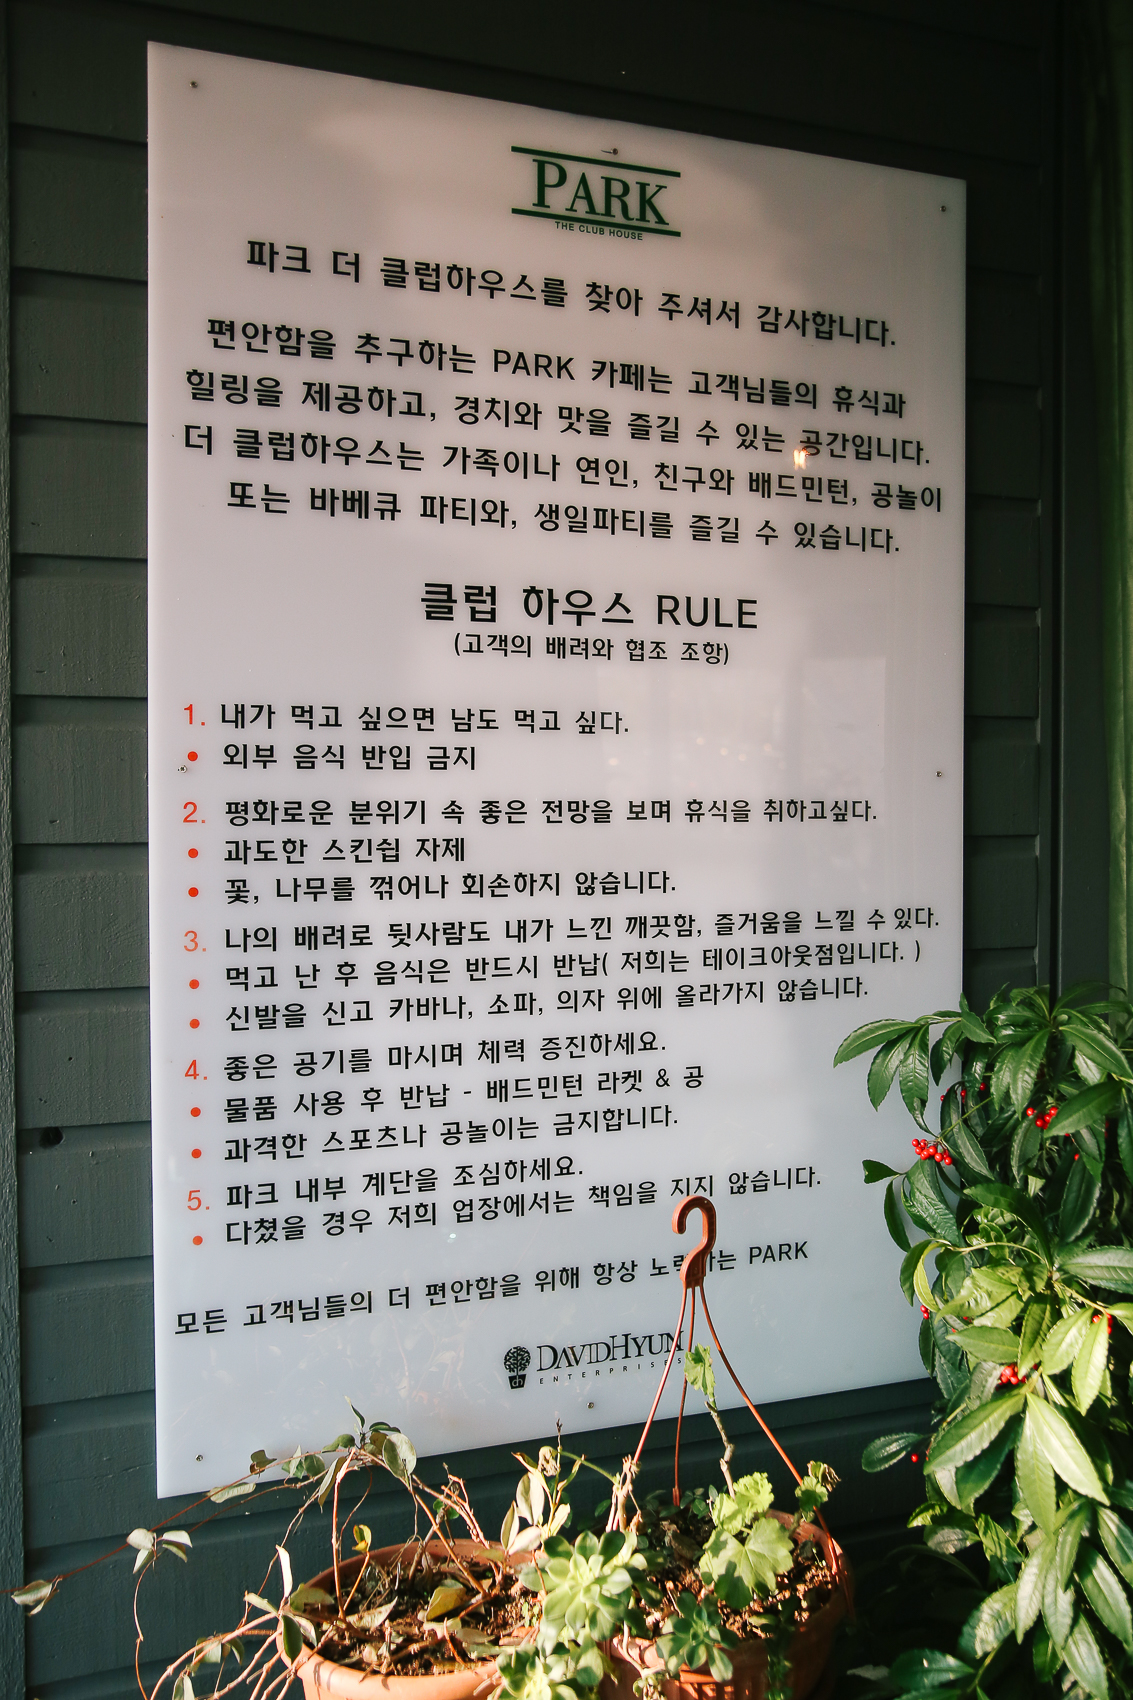 PARK
THE CLUB HOUSE
파크 더 클럽하우스를 찾아 주셔서 감사합니다.
편안함을 추구하는 PARK 카페는 고객님들의 휴식과
힐링을 제공하고, 경치와 맛을 즐길 수 있는 공간입니다.
더 클럽하우스는 가족이나 연인, 친구와 배드민턴, 공놀이
또는 바베큐 파티와, 생일파티를 즐길 수 있습니다.
클럽 하우스 RULE
(고객의 배려와 협조 조항)
1. 내가 먹고 싶으면 남도 먹고 싶다.
• 외부 음식 반입 금지
2. 평화로운 분위기 속 좋은 전망을 보며 휴식을 취하고싶다.
• 과도한 스킨쉽 자제
• 꽃, 나무를 꺾어나 회손하지 않습니다.
3. 나의 배려로 뒷사람도 내가 느낀 깨끗함, 즐거움을 느낄 수 있다.
• 먹고 난 후 음식은 반드시 반납( 저희는 테이크아웃점입니다. )
• 신발을 신고 카바나, 소파, 의자 위에 올라가지 않습니다.
4. 좋은 공기를 마시며 체력 증진하세요.
• 물품 사용 후 반납 - 배드민턴 라켓 & 공
• 과격한 스포츠나 공놀이는 금지합니다.
5. 파크 내부 계단을 조심하세요.
• 다쳤을 경우 저희 업장에서는 책임을 지지 않습니다.
모든 고객님들의 더 편안함을 위해 항상 PARK
DAVIDHYUN
ENTERPRISES